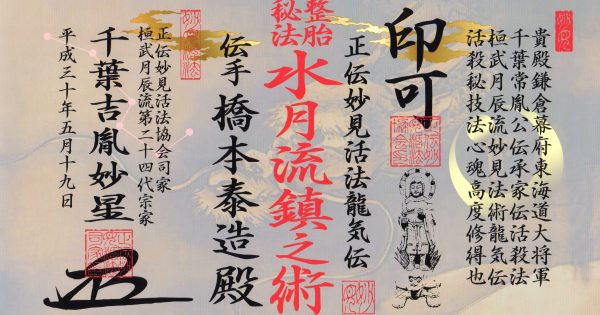 貴殿鎌倉幕府東海道大将軍
千葉常胤公伝承家伝活殺法
桓武月辰流妙見法術龍気伝
活殺秘技法心魂高度修得也
印可
正伝妙見活法龍気伝
整胎
秘法
水月流鎮之術
伝手 橋本泰造殿
正伝妙見活法協会司家
桓武月辰流第二十四代宗家
千葉吉胤妙星
平成三十年五月十九日